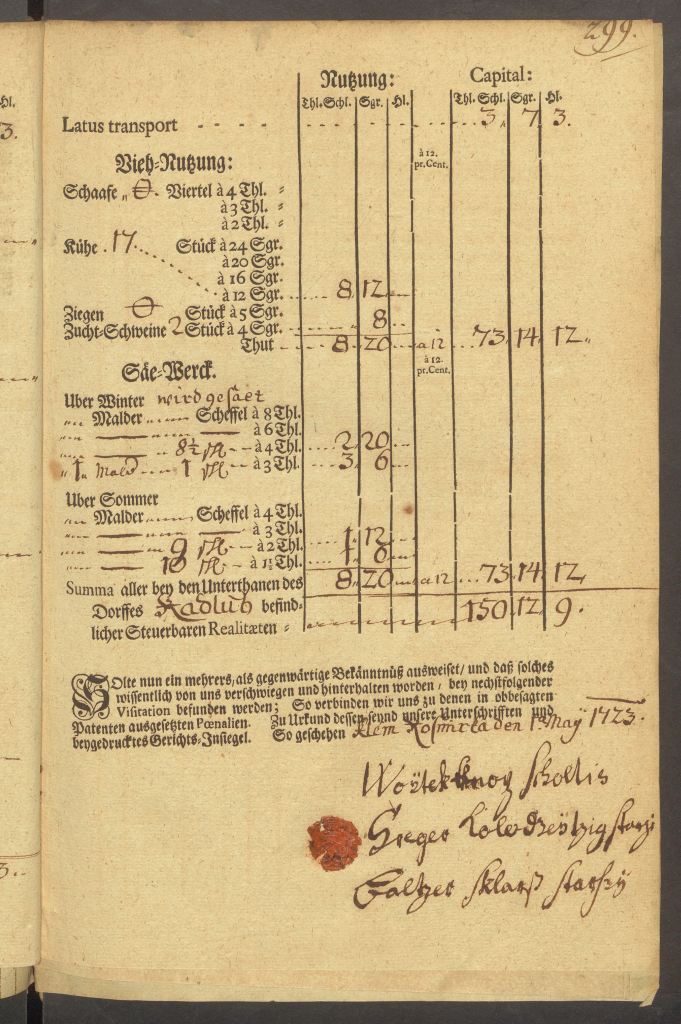 299.
Nutzung: Capital:
Thl. Schl. Sgr. Hl. Thl. Schl. Sgr. Hl.
Latus transport - - - - 3. 7. 3.
Vieh-Nutzung: à 12. pr. Cent.
Schaafe Viertel à 4 Thl.
à 3 Thl.
à 2 Thl.
Kühe 17. Stück à 24 Sgr.
à 20 Sgr.
à 16 Sgr.
à 12 Sgr. 8. 12
Ziegen Stück à 5 Sgr.
Zucht-Schweine 2 Stück à 4 Sgr. 8.
Thut 8. 20 a 12 73. 14. 12.
à 12. pr. Cent.
Säe-Werck.
Uber Winter wird gesäet
Malder Scheffel à 8 Thl.
à 6 Thl.
8½ à 4 Thl. 2. 20
1. Mald 1 à 3 Thl. 3. 6
Uber Sommer
Malder Scheffel à 4 Thl.
à 3 Thl.
9 à 2 Thl. 1. 12
à 1½ Thl. 1. 8
Summa aller bey den Unterthanen des 8. 20 a 12 73. 14. 12.
Dorffes Radlub befind- 150. 12. 9.
licher Steuerbaren Realitæten
Solte nun ein mehrers, als gegenwärtige Bekänntnüß ausweiset/ und daß solches
wissentlich von uns verschwiegen und hinterhalten worden, bey nechstfolgender
Visitation befunden werden; So verbinden wir uns zu denen in obbesagten
Patenten ausgesetzten Pœnalien. Zu Urkund dessen seynd unsere Unterschrifften und
beygedrucktes Gerichts-Insiegel. So geschehen den 1. May 1723.
Woytek Scholtis
Greger
Baltzer Sklarß